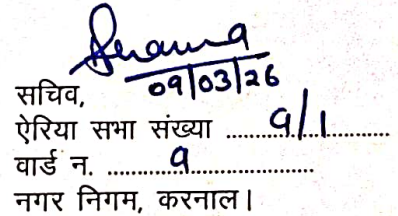 Sharma
09/03/26
सचिव,
ऐरिया सभा संख्या ......9/1......
वार्ड न. ......9......
नगर निगम, करनाल।